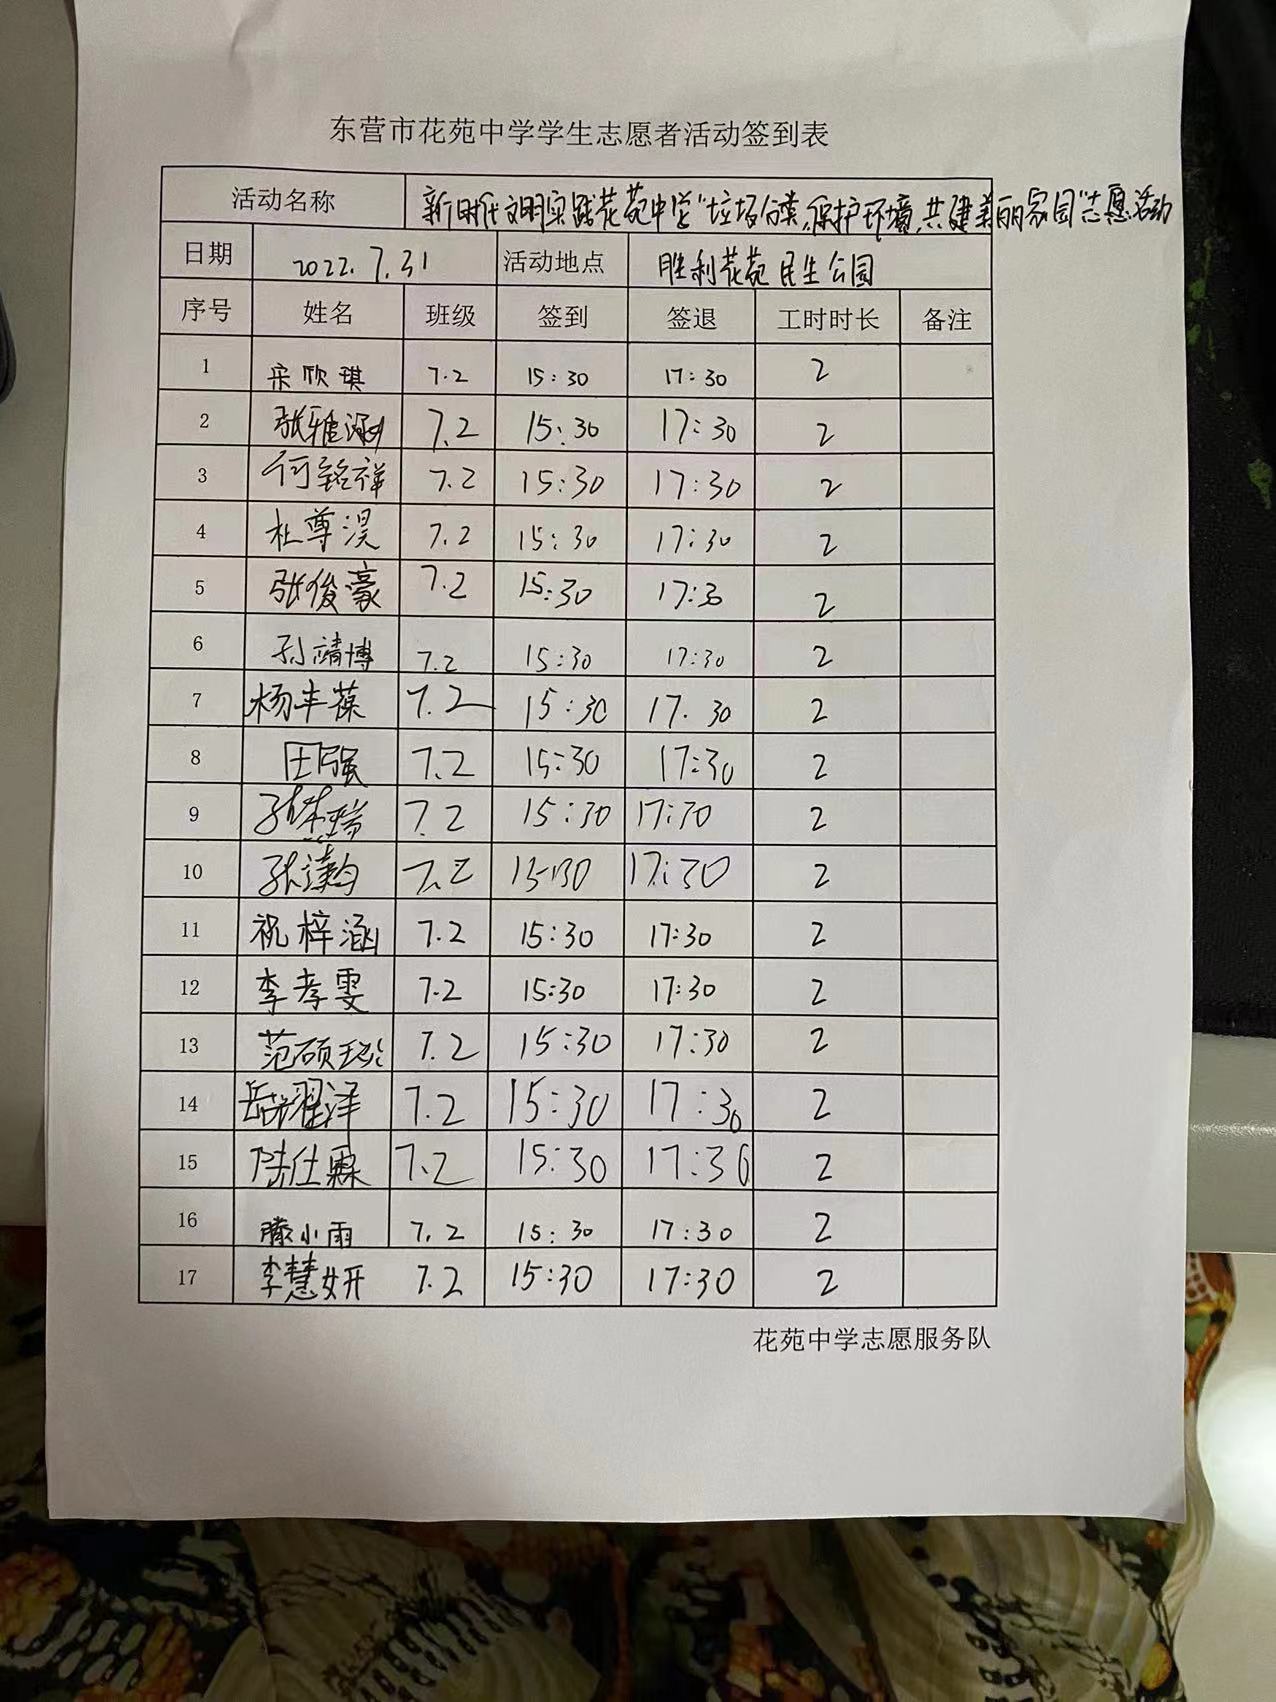 东营市花苑中学学生志愿者活动签到表
活动名称 新时代文明实践花苑中学"垃圾分类,保护环境,共建美丽家园"志愿活动
日期 2022.7.31 活动地点 胜利花苑民生公园
序号 姓名 班级 签到 签退 工时时长 备注
1 宋欣琪 7.2 15:30 17:30 2
2 张雅涵 7.2 15:30 17:30 2
3 何铭祥 7.2 15:30 17:30 2
4 杜尊淏 7.2 15:30 17:30 2
5 张俊豪 7.2 15:30 17:30 2
6 孙靖博 7.2 15:30 17:30 2
7 杨丰葆 7.2 15:30 17.30 2
8 王强 7.2 15:30 17:30 2
9 7.2 15:30 17:30 2
10 7.2 15:30 17:30 2
11 祝梓涵 7.2 15:30 17:30 2
12 李孝雯 7.2 15:30 17:30 2
13 范硕 7.2 15:30 17:30 2
14 岳耀泽 7.2 15:30 17:30 2
15 陆仕霖 7.2 15:30 17:30 2
16 滕小雨 7.2 15:30 17:30 2
17 李慧妍 7.2 15:30 17:30 2
花苑中学志愿服务队